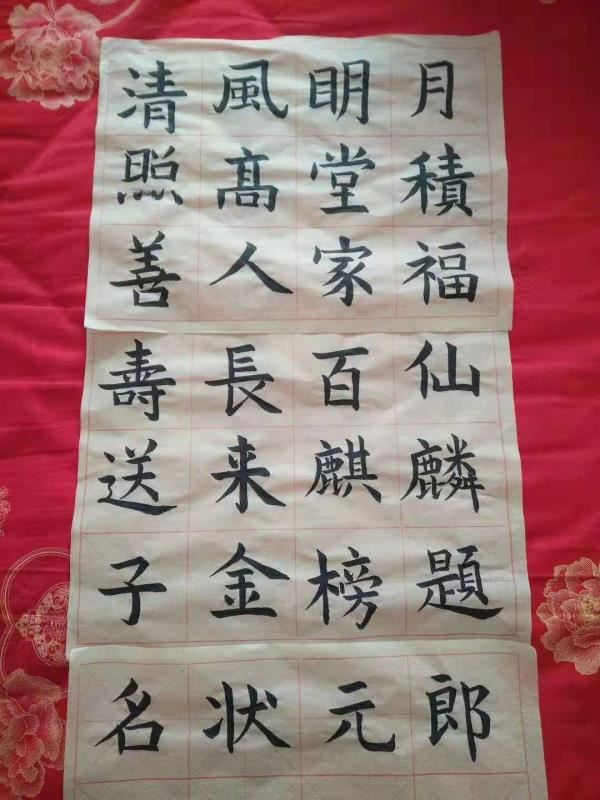 清風眀月
照髙堂積
善人家福
壽長百仙
送来麒麟
子金榜題
名状元郎